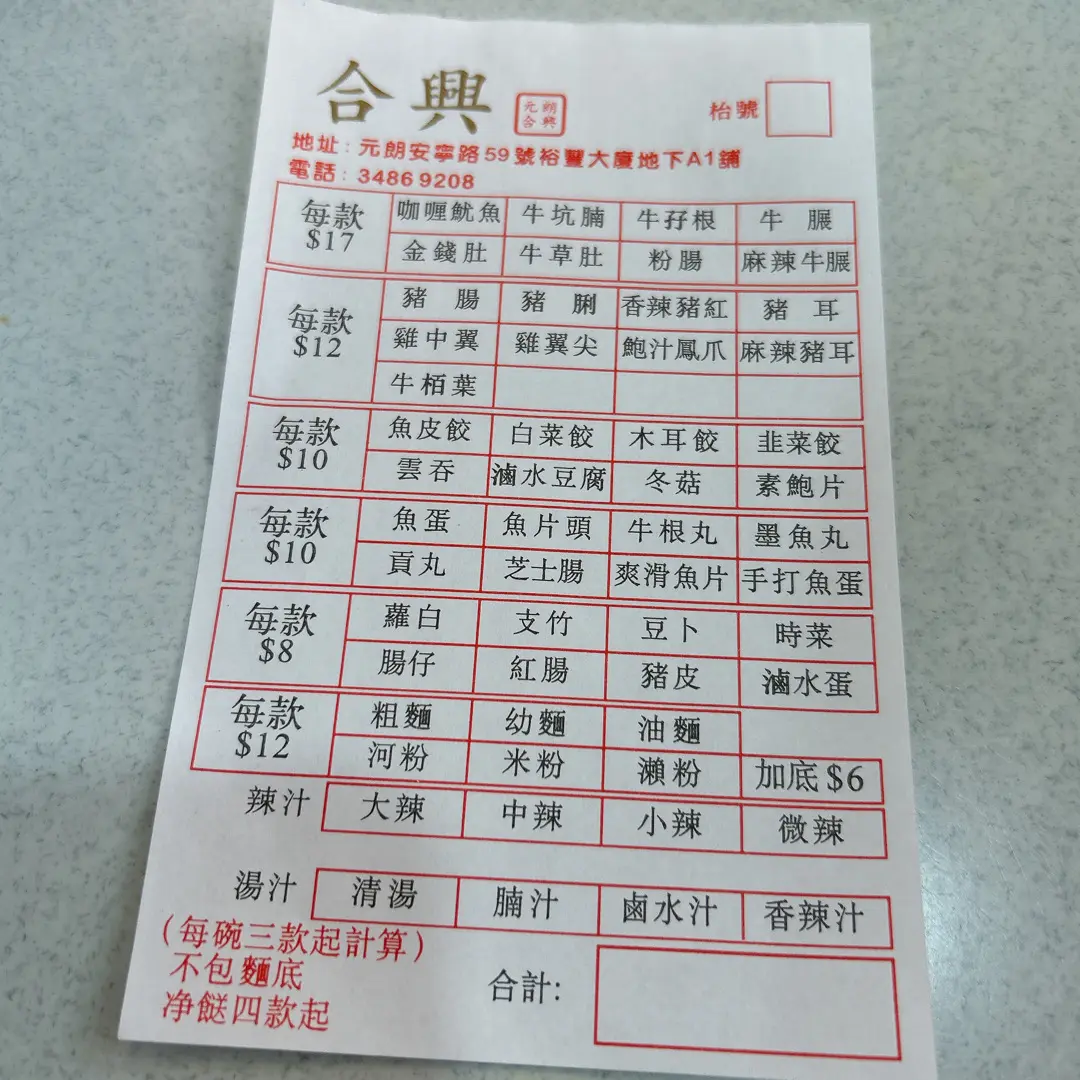 合興
元朗
合興
枱號
地址:元朗安寧路59號裕豐大廈地下A1鋪
電話:34869208
每款
$17
咖喱魷魚 牛坑腩 牛孖根 牛𦟌
金錢肚 牛草肚 粉腸 麻辣牛𦟌
每款
$12
豬腸 豬脷 香辣豬紅 豬耳
雞中翼 雞翼尖 鮑汁鳳爪 麻辣豬耳
牛栢葉
每款
$10
魚皮餃 白菜餃 木耳餃 韭菜餃
雲吞 滷水豆腐 冬菇 素鮑片
每款
$10
魚蛋 魚片頭 牛根丸 墨魚丸
貢丸 芝士腸 爽滑魚片 手打魚蛋
每款
$8
蘿白 支竹 豆卜 時菜
腸仔 紅腸 豬皮 滷水蛋
每款
$12
粗麵 幼麵 油麵
河粉 米粉 瀨粉 加底 $6
辣汁 大辣 中辣 小辣 微辣
湯汁 清湯 腩汁 鹵水汁 香辣汁
(每碗三款起計算)
不包麵底
净餸四款起
合計: